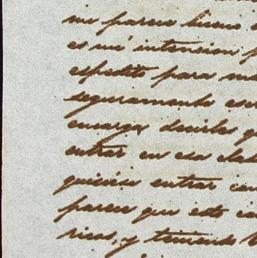 me parece bueno
es mi intension
espedito para
seguramente
encargo decirles q
entrar en esa
quiciese entrar con
parece que este
ricas, y teniendo